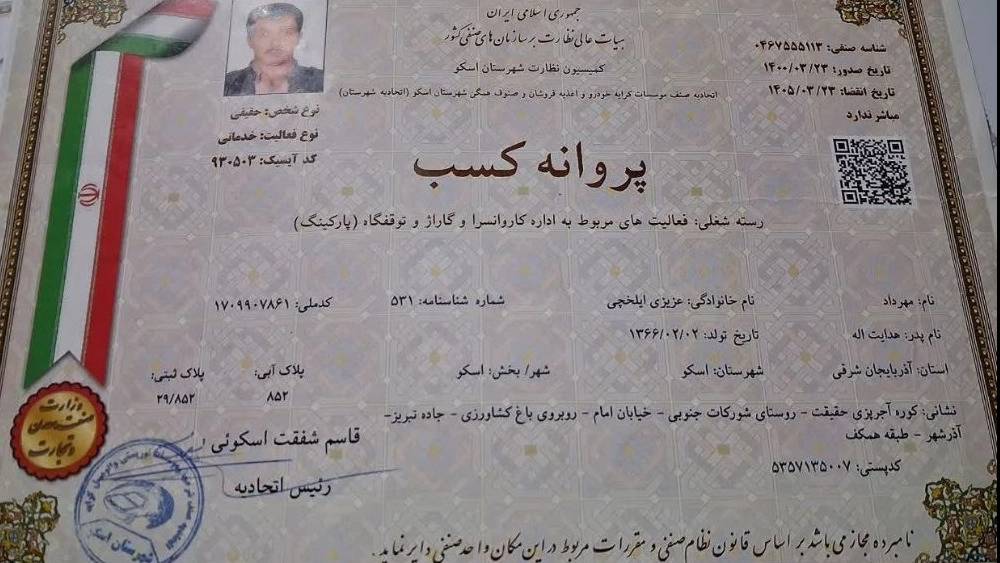 جمهوری اسلامی ایران
هیات عالی نظارت بر سازمان‌های صنفی کشور
کمیسیون نظارت شهرستان اسکو
اتحادیه صنف موسسات کرایه خودرو و اغذیه فروشان و صنوف همگن شهرستان اسکو (اتحادیه شهرستان)
شناسه صنفی: ۰۴۶۷۵۵۵۱۱۳
تاریخ صدور: ۱۴۰۰/۰۳/۲۳
تاریخ انقضا: ۱۴۰۵/۰۳/۲۳
مباشر ندارد
نوع شخص: حقیقی
نوع فعالیت: خدماتی
کد آیسیک: ۹۳۰۵۰۳
پروانه کسب
رسته شغلی: فعالیت های مربوط به اداره کاروانسرا و گاراژ و توقفگاه (پارکینگ)
نام: مهرداد نام خانوادگی: عزیزی ایلخچی شماره شناسنامه: ۵۳۱ کدملی: ۱۷۰۹۹۰۷۸۶۱
نام پدر: هدایت اله تاریخ تولد: ۱۳۶۶/۰۲/۰۲
استان: آذربایجان شرقی شهرستان: اسکو شهر/ بخش: اسکو پلاک آبی: پلاک ثبتی:
۸۵۲ ۲۹/۸۵۲
نشانی: کوره آجرپزی حقیقت - روستای شورکات جنوبی - خیابان امام - روبروی باغ کشاورزی - جاده تبریز-
آذرشهر - طبقه همکف
کدپستی: ۵۳۵۷۱۳۵۰۰۷
قاسم شفقت اسکوئی
رئیس اتحادیه
وزارت
صنعت، معدن
و تجارت
شهرستان اسکو
نامبرده مجاز می باشد بر اساس قانون نظام صنفی و مقررات مربوط در این مکان واحد صنفی دایر نماید.